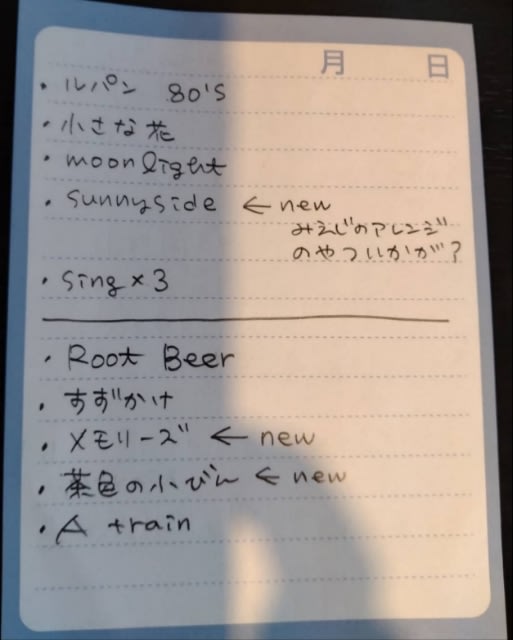 月 日
・ルパン 80's
・小さな花
・moonlight
・sunnyside ← new
みえじのアレンジ
のやついかが?
・Sing×3
・Root Beer
・すずかけ
・メモリーズ ← new
・茶色の小びん ← new
・A train